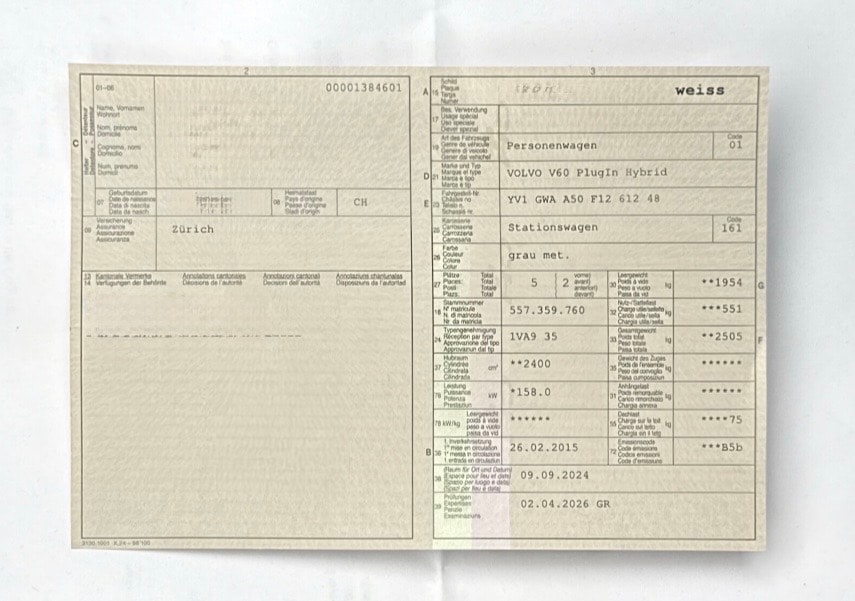 2
01-06
00001384601
Name, Vornamen
Wohnort
Nom, prénoms
Domicile
Cognome, nomi
Domicilio
Num, prenums
Domicil
C
07
Geburtsdatum
Date de naissance
Data di nascita
Data da nasch.
08
Heimatstaat
Pays d'origine
Paese d'origine
Stadi d'origin
CH
09
Versicherung
Assurance
Assicurazione
Assicuranza
Zürich
13
14
Kantonale Vermerke
Verfügungen der Behörde
Annotations cantonales
Décisions de l'autorité
Annotazioni cantonali
Decisioni dell'autorità
Annotaziuns chantunalas
Disposiziuns da l'autoritad
3
A 15
Schild
Plaque
Targa
Numer
weiss
17
Bes. Verwendung
Usage spécial
Uso speciale
Diever spezial
19
Art des Fahrzeugs
Genre de véhicule
Genere di veicolo
Gener dal vehichel
Personenwagen
Code
01
D 21
Marke und Typ
Marque et type
Marca e tipo
Marca e tip
VOLVO V60 PlugIn Hybrid
E 23
Fahrgestell-Nr.
Châssis no
Telaio n.
Schassis nr.
YV1 GWA A50 F12 612 48
25
Karosserie
Carrosserie
Carrozzeria
Carossaria
Stationswagen
Code
161
26
Farbe
Couleur
Colore
Colur
grau met.
27
Plätze Total
Places: Total
Posti: Totale
Plazs: Total
5
2
vorne)
avant)
anteriori)
davant)
30
Leergewicht
Poids à vide
Peso a vuoto
Paisa da vid
kg
**1954
G
18
Stammnummer
N° matricule
N. di matricola
Nr. da matricla
557.359.760
32
Nutz-/Sattellast
Charge utile/sellette
Carico utile/sella
Chargia utila/sella
kg
***551
24
Typengenehmigung
Réception par type
Approvazione del tipo
Approvaziun dal tip
1VA9 35
33
Gesamtgewicht
Poids total
Peso totale
Paisa totala
kg
**2505
F
37
Hubraum
Cylindrée
Cilindrata
Cilindrada
cm³
**2400
35
Gewicht des Zuges
Poids de l'ensemble
Peso del convoglio
Paisa cumposiziun
kg
******
76
Leistung
Puissance
Potenza
Prestaziun
kW
*158.0
31
Anhängelast
Poids remorquable
Carico rimorchiato
Chargia annexa
kg
******
78 kW/kg
Leergewicht
poids à vide
peso a vuoto
paisa da vid
******
55
Dachlast
Charge sur le toit
Carico sul tetto
Chargia sin il tetg
kg
****75
B 36
1. Inverkehrsetzung
1re mise en circulation
1a messa in circolazione
1. entrada en circulaziun
26.02.2015
72
Emissionscode
Code émissions
Codice emissioni
Code d'emissiuns
***B5b
38
(Raum für Ort und Datum)
(Espace pour lieu et date)
(Spazio per luogo e data)
(Spazi per lieu e data)
09.09.2024
39
Prüfungen
Expertises
Perizie
Examinaziuns
02.04.2026 GR